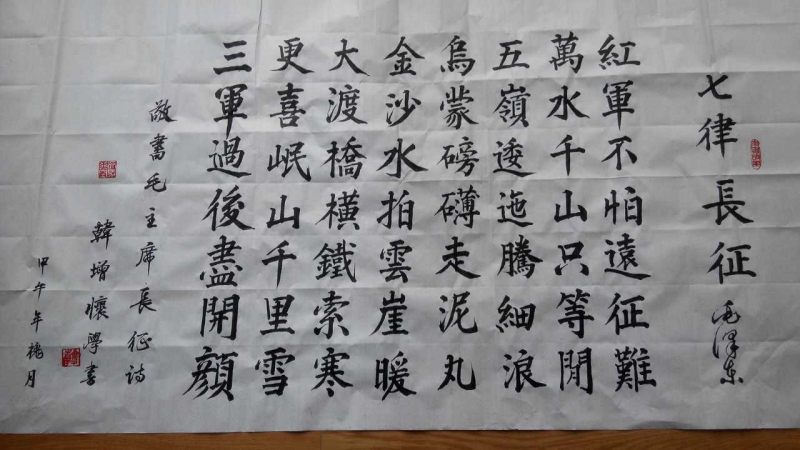 七律長征
毛澤東
紅軍不怕遠征難
萬水千山只等閒
五嶺逶迤騰細浪
烏蒙磅礴走泥丸
金沙水拍雲崖暖
大渡橋橫鐵索寒
更喜岷山千里雪
三軍過後盡開顏
敬書毛主席長征詩
韓增懷學書
甲午年桃月